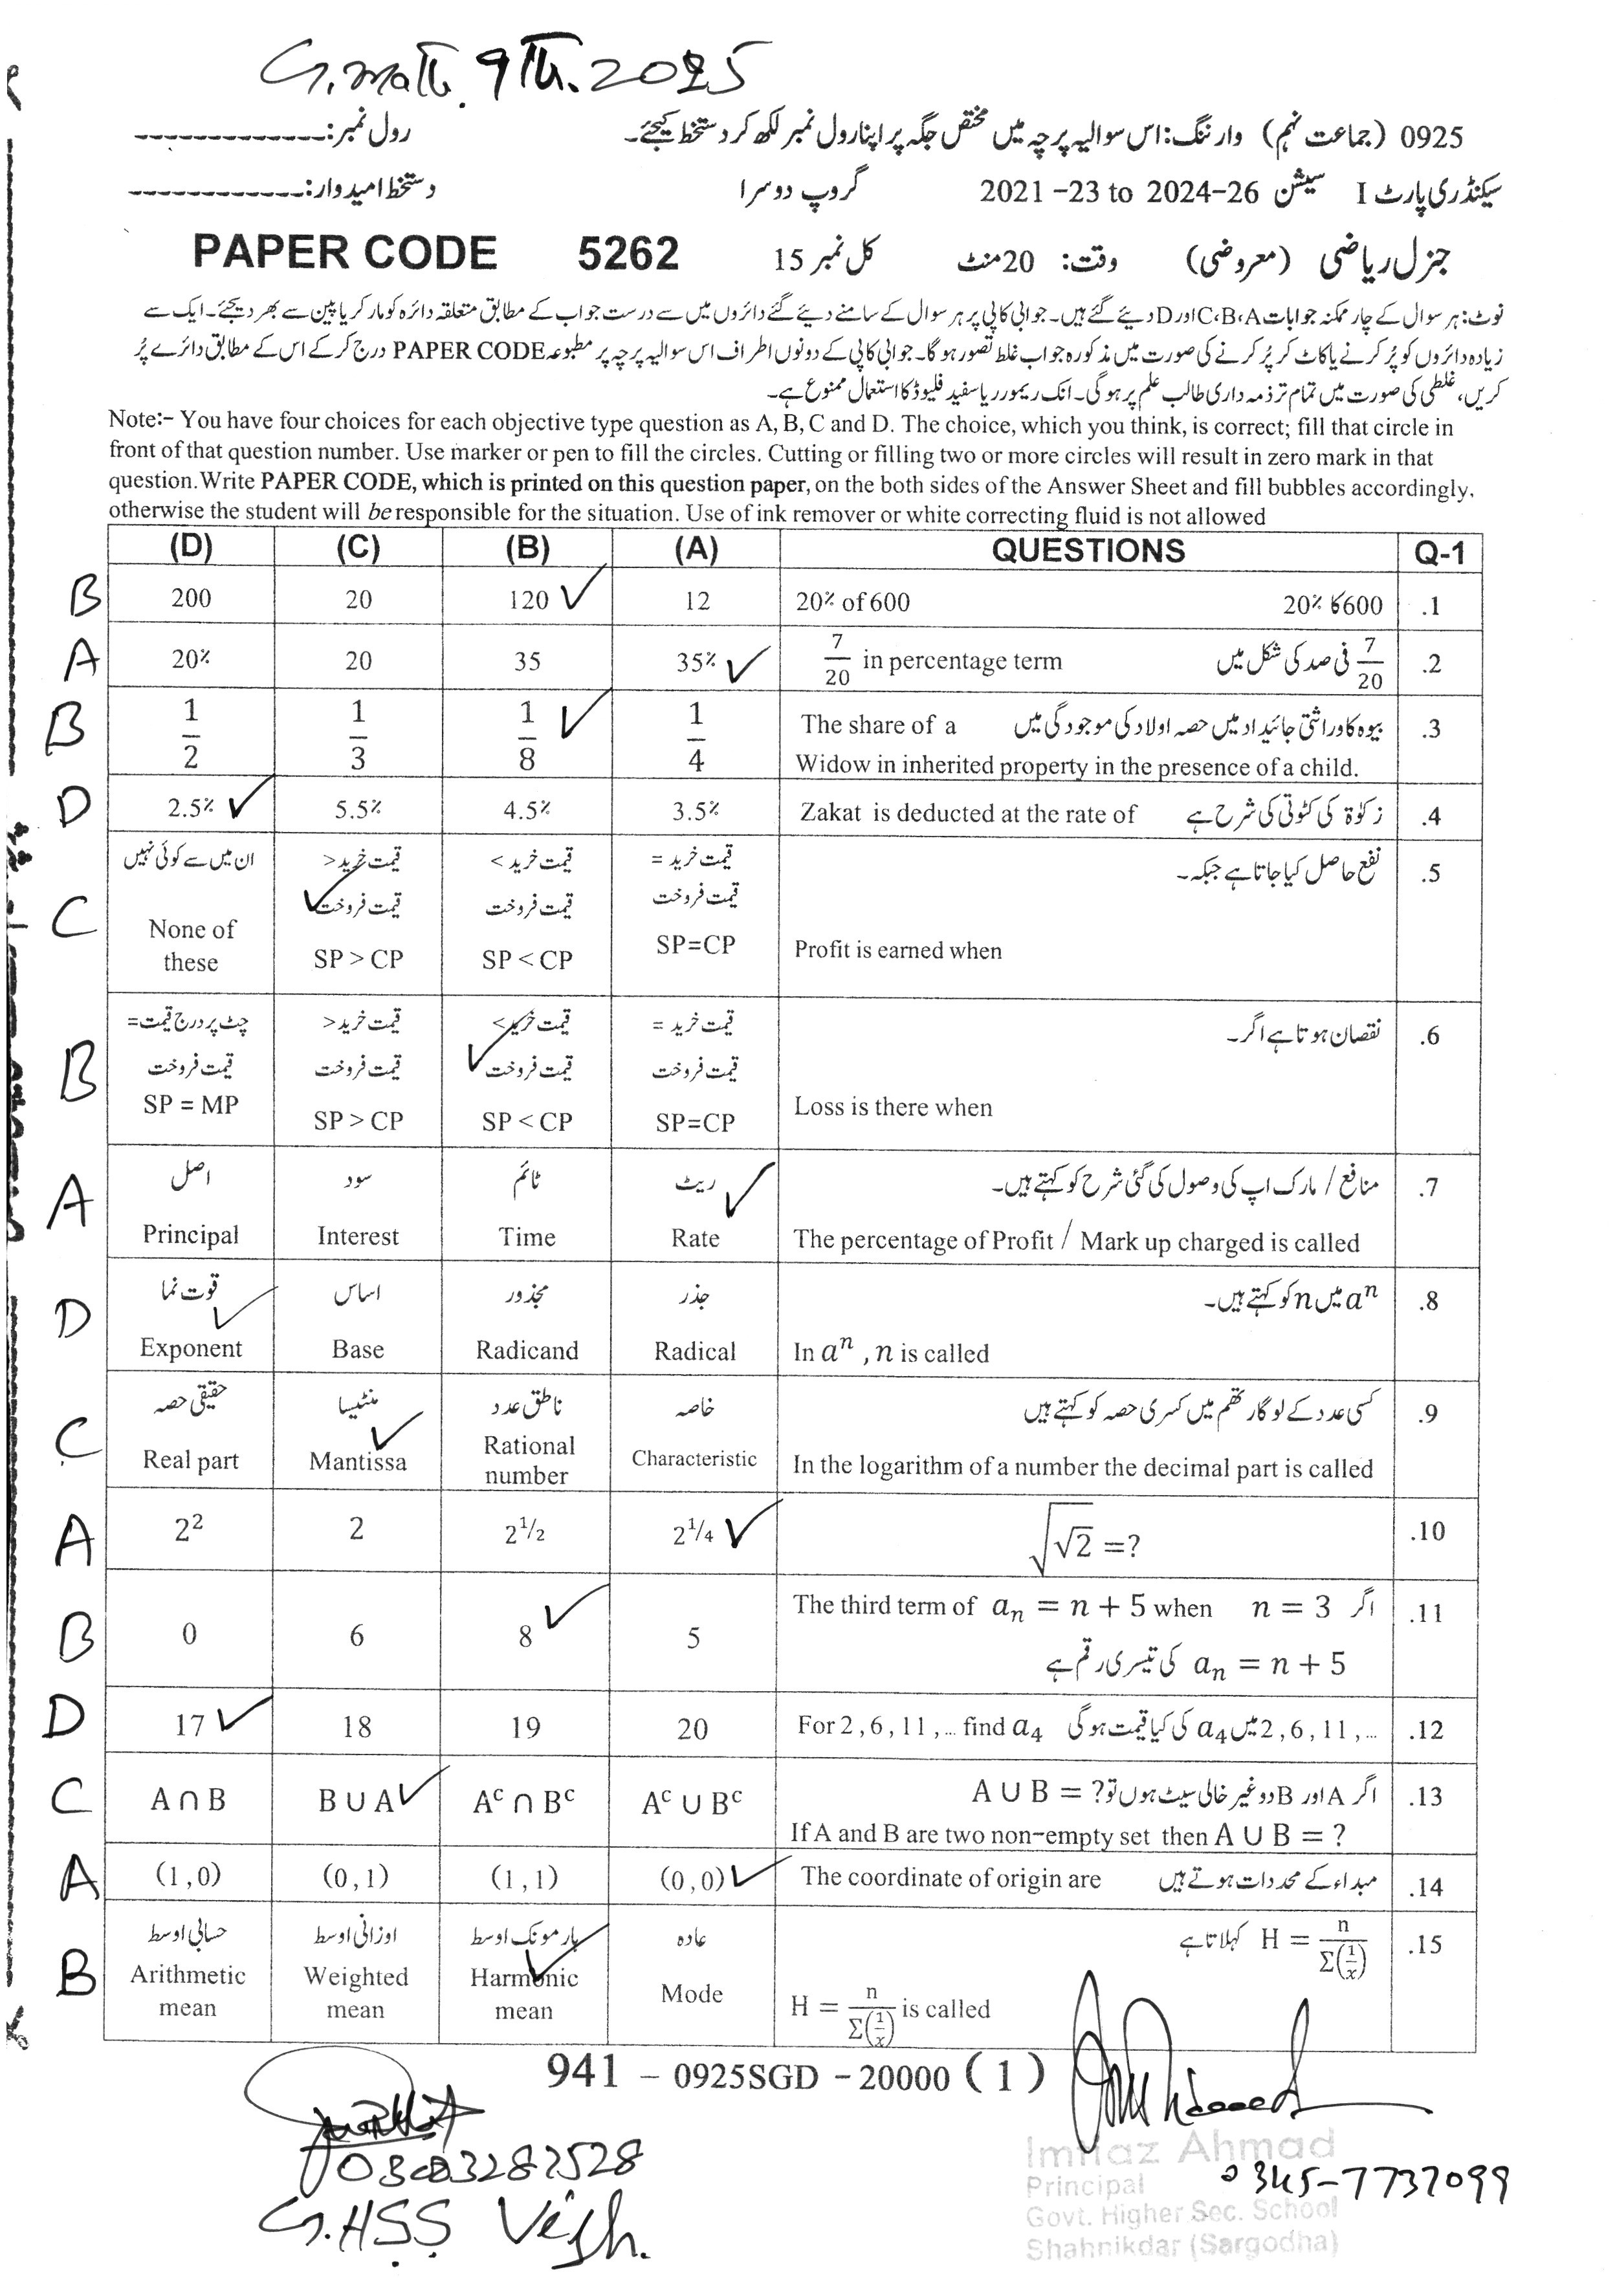 G.math. 9Th. 2025
0925 (جماعت نہم) وارننگ: اس سوالیہ پرچہ میں مختص جگہ پر اپنا رول نمبر لکھ کر دستخط کیجئے۔ رول نمبر: -------------
سیکنڈری پارٹ I سیشن 2021-23 to 2024-26 گروپ دوسرا دستخط امیدوار: ------------
جنرل ریاضی (معروضی) وقت: 20 منٹ کل نمبر 15 PAPER CODE 5262
نوٹ: ہر سوال کے چار ممکنہ جوابات A، B، C اور D دیئے گئے ہیں۔ جوابی کاپی پر ہر سوال کے سامنے دیئے گئے دائروں میں سے درست جواب کے مطابق متعلقہ دائرہ کو مارکر یا پین سے بھر دیجئے۔ ایک سے
زیادہ دائروں کو پُر کرنے یا کاٹ کر پُر کرنے کی صورت میں مذکورہ جواب غلط تصور ہوگا۔ جوابی کاپی کے دونوں اطراف اس سوالیہ پرچہ پر مطبوعہ PAPER CODE درج کر کے اس کے مطابق دائرے پُر
کریں، غلطی کی صورت میں تمام تر ذمہ داری طالب علم پر ہوگی۔ انک ریمور یا سفید فلیوڈ کا استعمال ممنوع ہے۔
Note:- You have four choices for each objective type question as A, B, C and D. The choice, which you think, is correct; fill that circle in
front of that question number. Use marker or pen to fill the circles. Cutting or filling two or more circles will result in zero mark in that
question. Write PAPER CODE, which is printed on this question paper, on the both sides of the Answer Sheet and fill bubbles accordingly,
otherwise the student will be responsible for the situation. Use of ink remover or white correcting fluid is not allowed
(D) (C) (B) (A) QUESTIONS Q-1
B 200 20 120 ✓ 12 20% of 600 600 کا 20% .1
A 20% 20 35 35% ✓ 7/20 in percentage term 7/20 فی صد کی شکل میں .2
B 1/2 1/3 1/8 ✓ 1/4 The share of a بیوہ کا وراثتی جائیداد میں حصہ اولاد کی موجودگی میں .3
Widow in inherited property in the presence of a child.
D 2.5% ✓ 5.5% 4.5% 3.5% Zakat is deducted at the rate of زکوٰۃ کی کٹوتی کی شرح ہے .4
ان میں سے کوئی نہیں قیمت خرید > قیمت خرید < قیمت خرید = نفع حاصل کیا جاتا ہے جبکہ۔ .5
قیمت فروخت ✓ قیمت فروخت قیمت فروخت
C None of these SP > CP SP < CP SP=CP Profit is earned when
چٹ پر درج قیمت= قیمت خرید > قیمت خرید < قیمت خرید = نقصان ہوتا ہے اگر۔ .6
قیمت فروخت قیمت فروخت قیمت فروخت ✓ قیمت فروخت
B SP = MP SP > CP SP < CP SP=CP Loss is there when
اصل سود ٹائم ریٹ ✓ منافع / مارک اپ کی وصول کی گئی شرح کو کہتے ہیں۔ .7
A Principal Interest Time Rate The percentage of Profit / Mark up charged is called
قوت نما ✓ اساس مجذور جذر aⁿ میں n کو کہتے ہیں۔ .8
D Exponent Base Radicand Radical In aⁿ , n is called
حقیقی حصہ منٹیسا ✓ ناطق عدد خاصہ کسی عدد کے لوگارتھم میں کسری حصہ کو کہتے ہیں .9
C Real part Mantissa Rational number Characteristic In the logarithm of a number the decimal part is called
A 2² 2 2^1/2 2^1/4 ✓ √√2 =? .10
B 0 6 8 ✓ 5 The third term of aₙ = n + 5 when n = 3 اگر .11
aₙ = n + 5 کی تیسری رقم ہے
D 17 ✓ 18 19 20 For 2 , 6 , 11 , ... find a₄ 2 , 6 , 11 , ... میں a₄ کی کیا قیمت ہوگی .12
C A ∩ B B ∪ A ✓ Aᶜ ∩ Bᶜ Aᶜ ∪ Bᶜ اگر A اور B دو غیر خالی سیٹ ہوں تو A ∪ B = ? .13
If A and B are two non-empty set then A ∪ B = ?
A (1,0) (0,1) (1,1) (0,0) ✓ The coordinate of origin are مبداء کے محددات ہوتے ہیں .14
حسابی اوسط اوزانی اوسط ہارمونک اوسط ✓ عادہ H = n/Σ(1/x) کہلاتا ہے .15
B Arithmetic mean Weighted mean Harmonic mean Mode H = n/Σ(1/x) is called
941 – 0925SGD – 20000 (1)
G.HSS Vejh.
Imtiaz Ahmad
Principal
Govt. Higher Sec. School
Shahnikdar (Sargodha)
0345-7737099